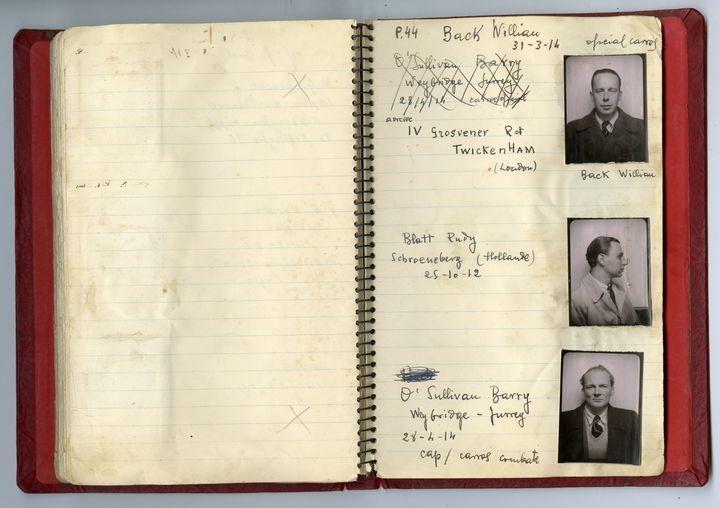 P.44 Back Willian
31-3-14 oficial carros
O'Sullivan Barry
Weybridge Surrey
28/4/14 carros
adresse
IV Grosvener Rd
TWICKENHAM
(London)
Back Willian
Blatt Rudy
Schoeneberg (Hollande)
25-10-12
O' Sullivan Barry
Weybridge - Surrey
28-4-14
cap / carros combate